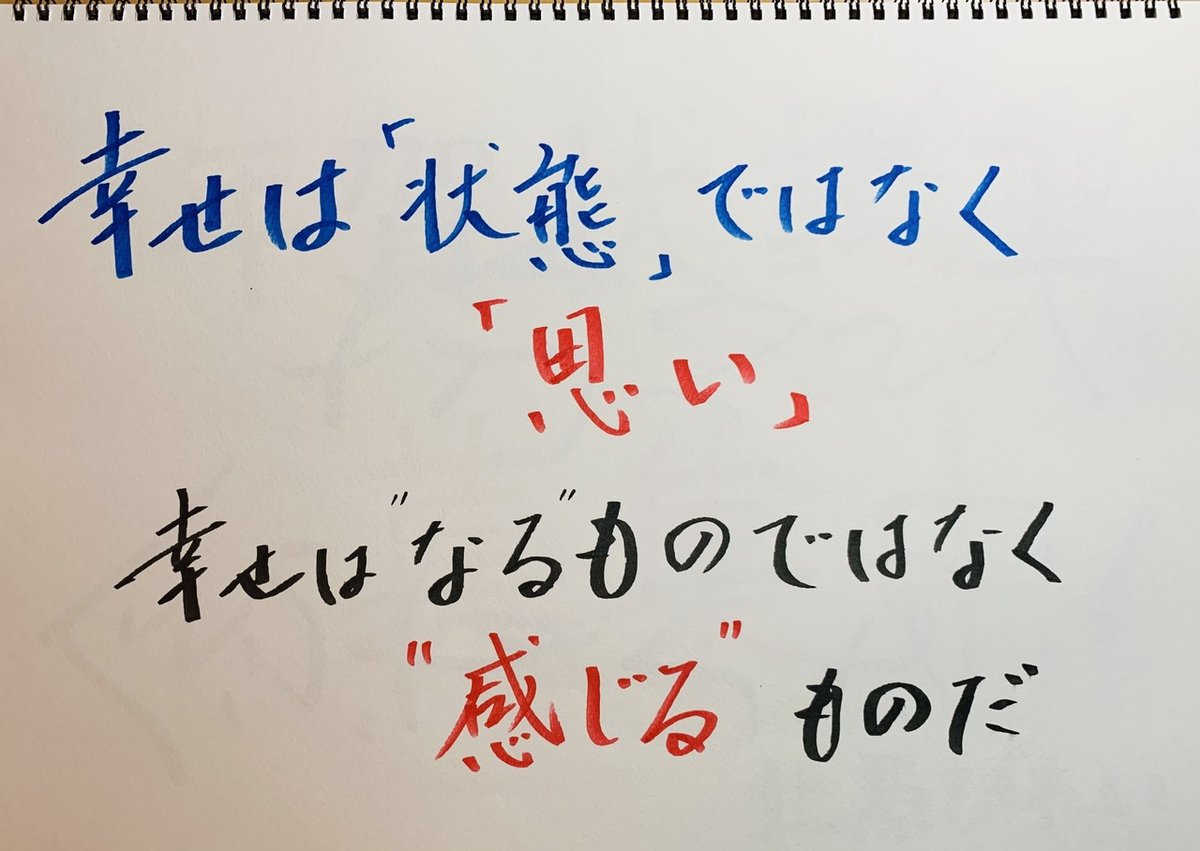 幸せは「状態」ではなく
「思い」
幸せは"なる"ものではなく
"感じる"ものだ